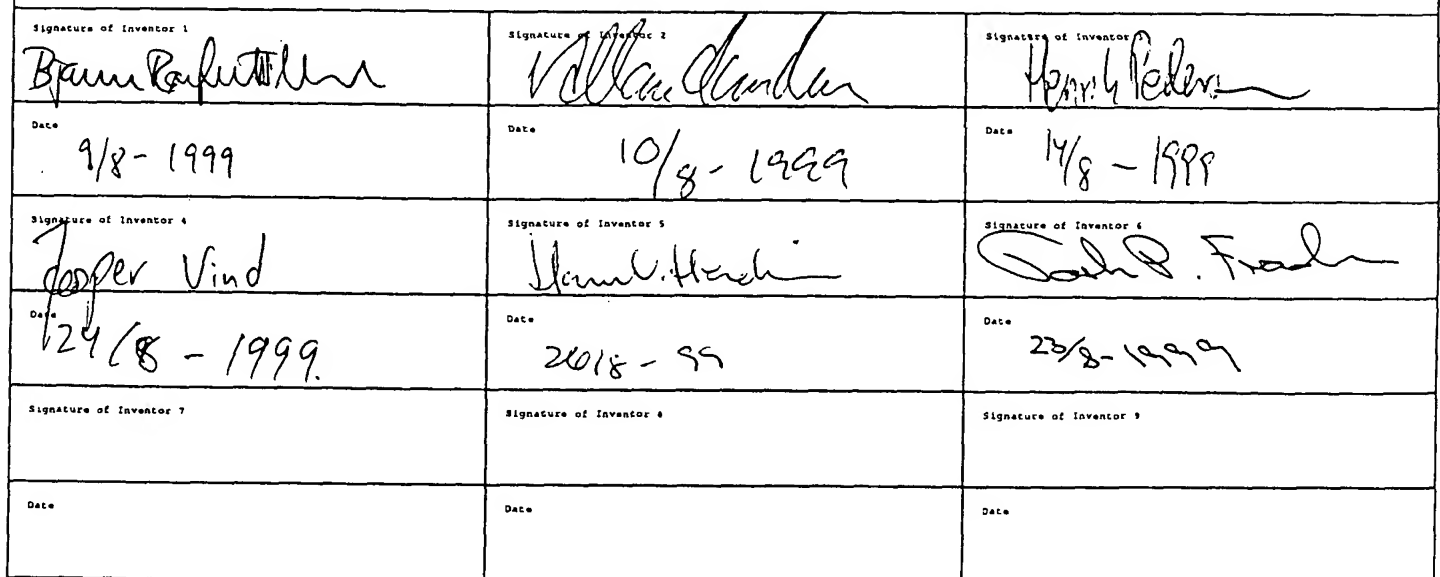 Signature of Inventor 1
Signature of Inventor 2
Signature of Inventor 3
Henrik Pedersen
Date
9/8 - 1999
Date
10/8 - 1999
Date
14/8 - 1999
Signature of Inventor 4
Jesper Vind
Signature of Inventor 5
Signature of Inventor 6
Date
24/8 - 1999.
Date
Date
23/8 - 1999
Signature of Inventor 7
Signature of Inventor 8
Signature of Inventor 9
Date
Date
Date